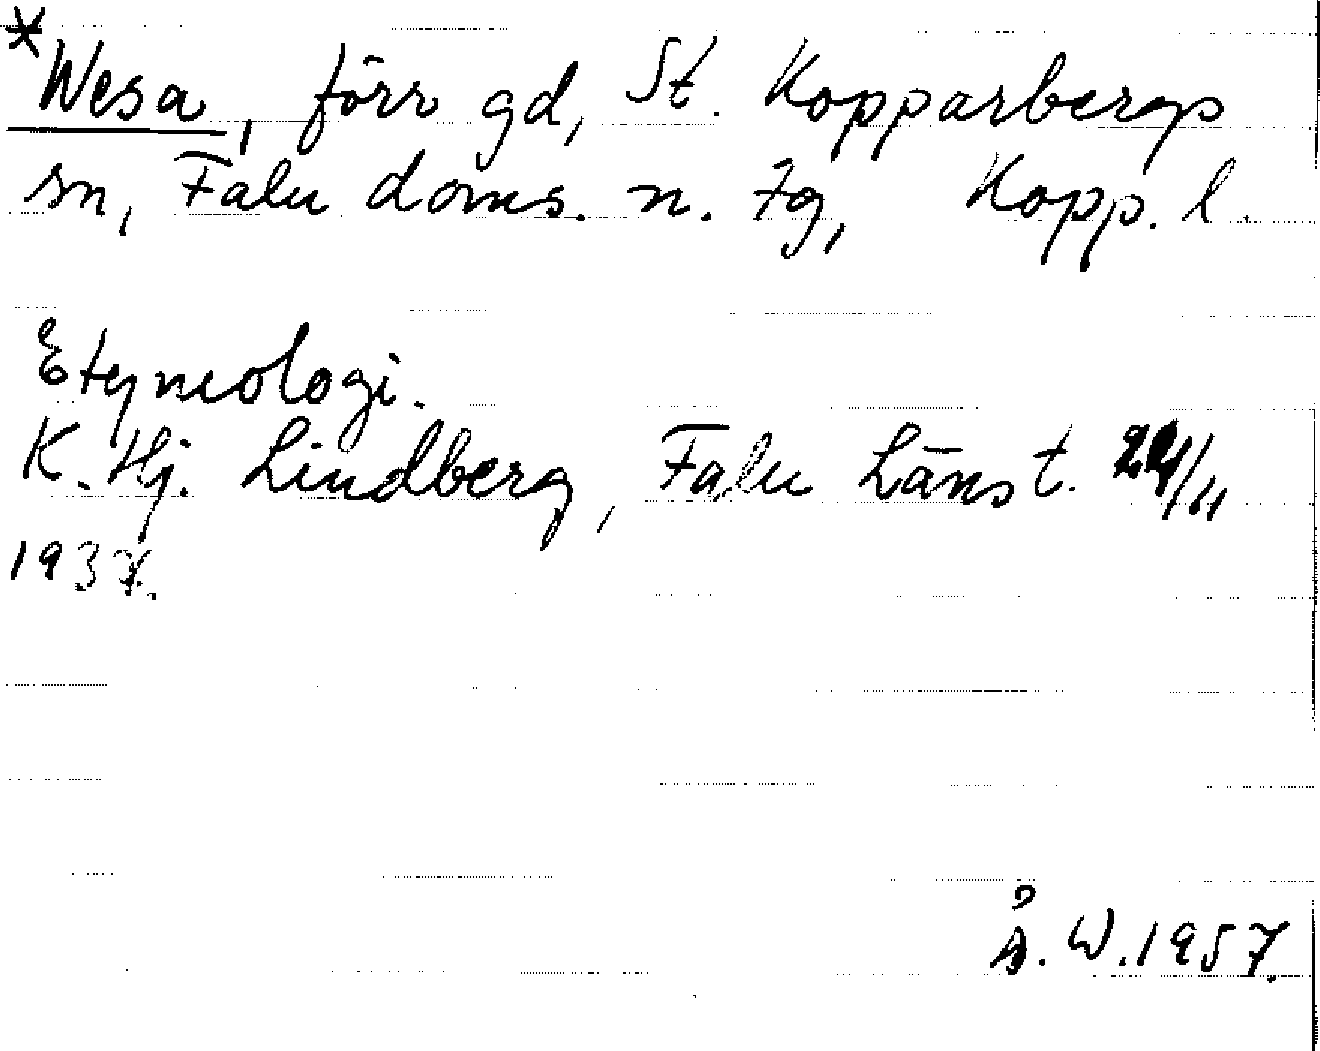 *Wesa, förr gd, St. Kopparbergs
sn, Falu doms. n. tg, Kopp. l.
Etymologi.
K. Hj. Lindberg, Falu Länst. /11
1937.
Å. W. 1957.